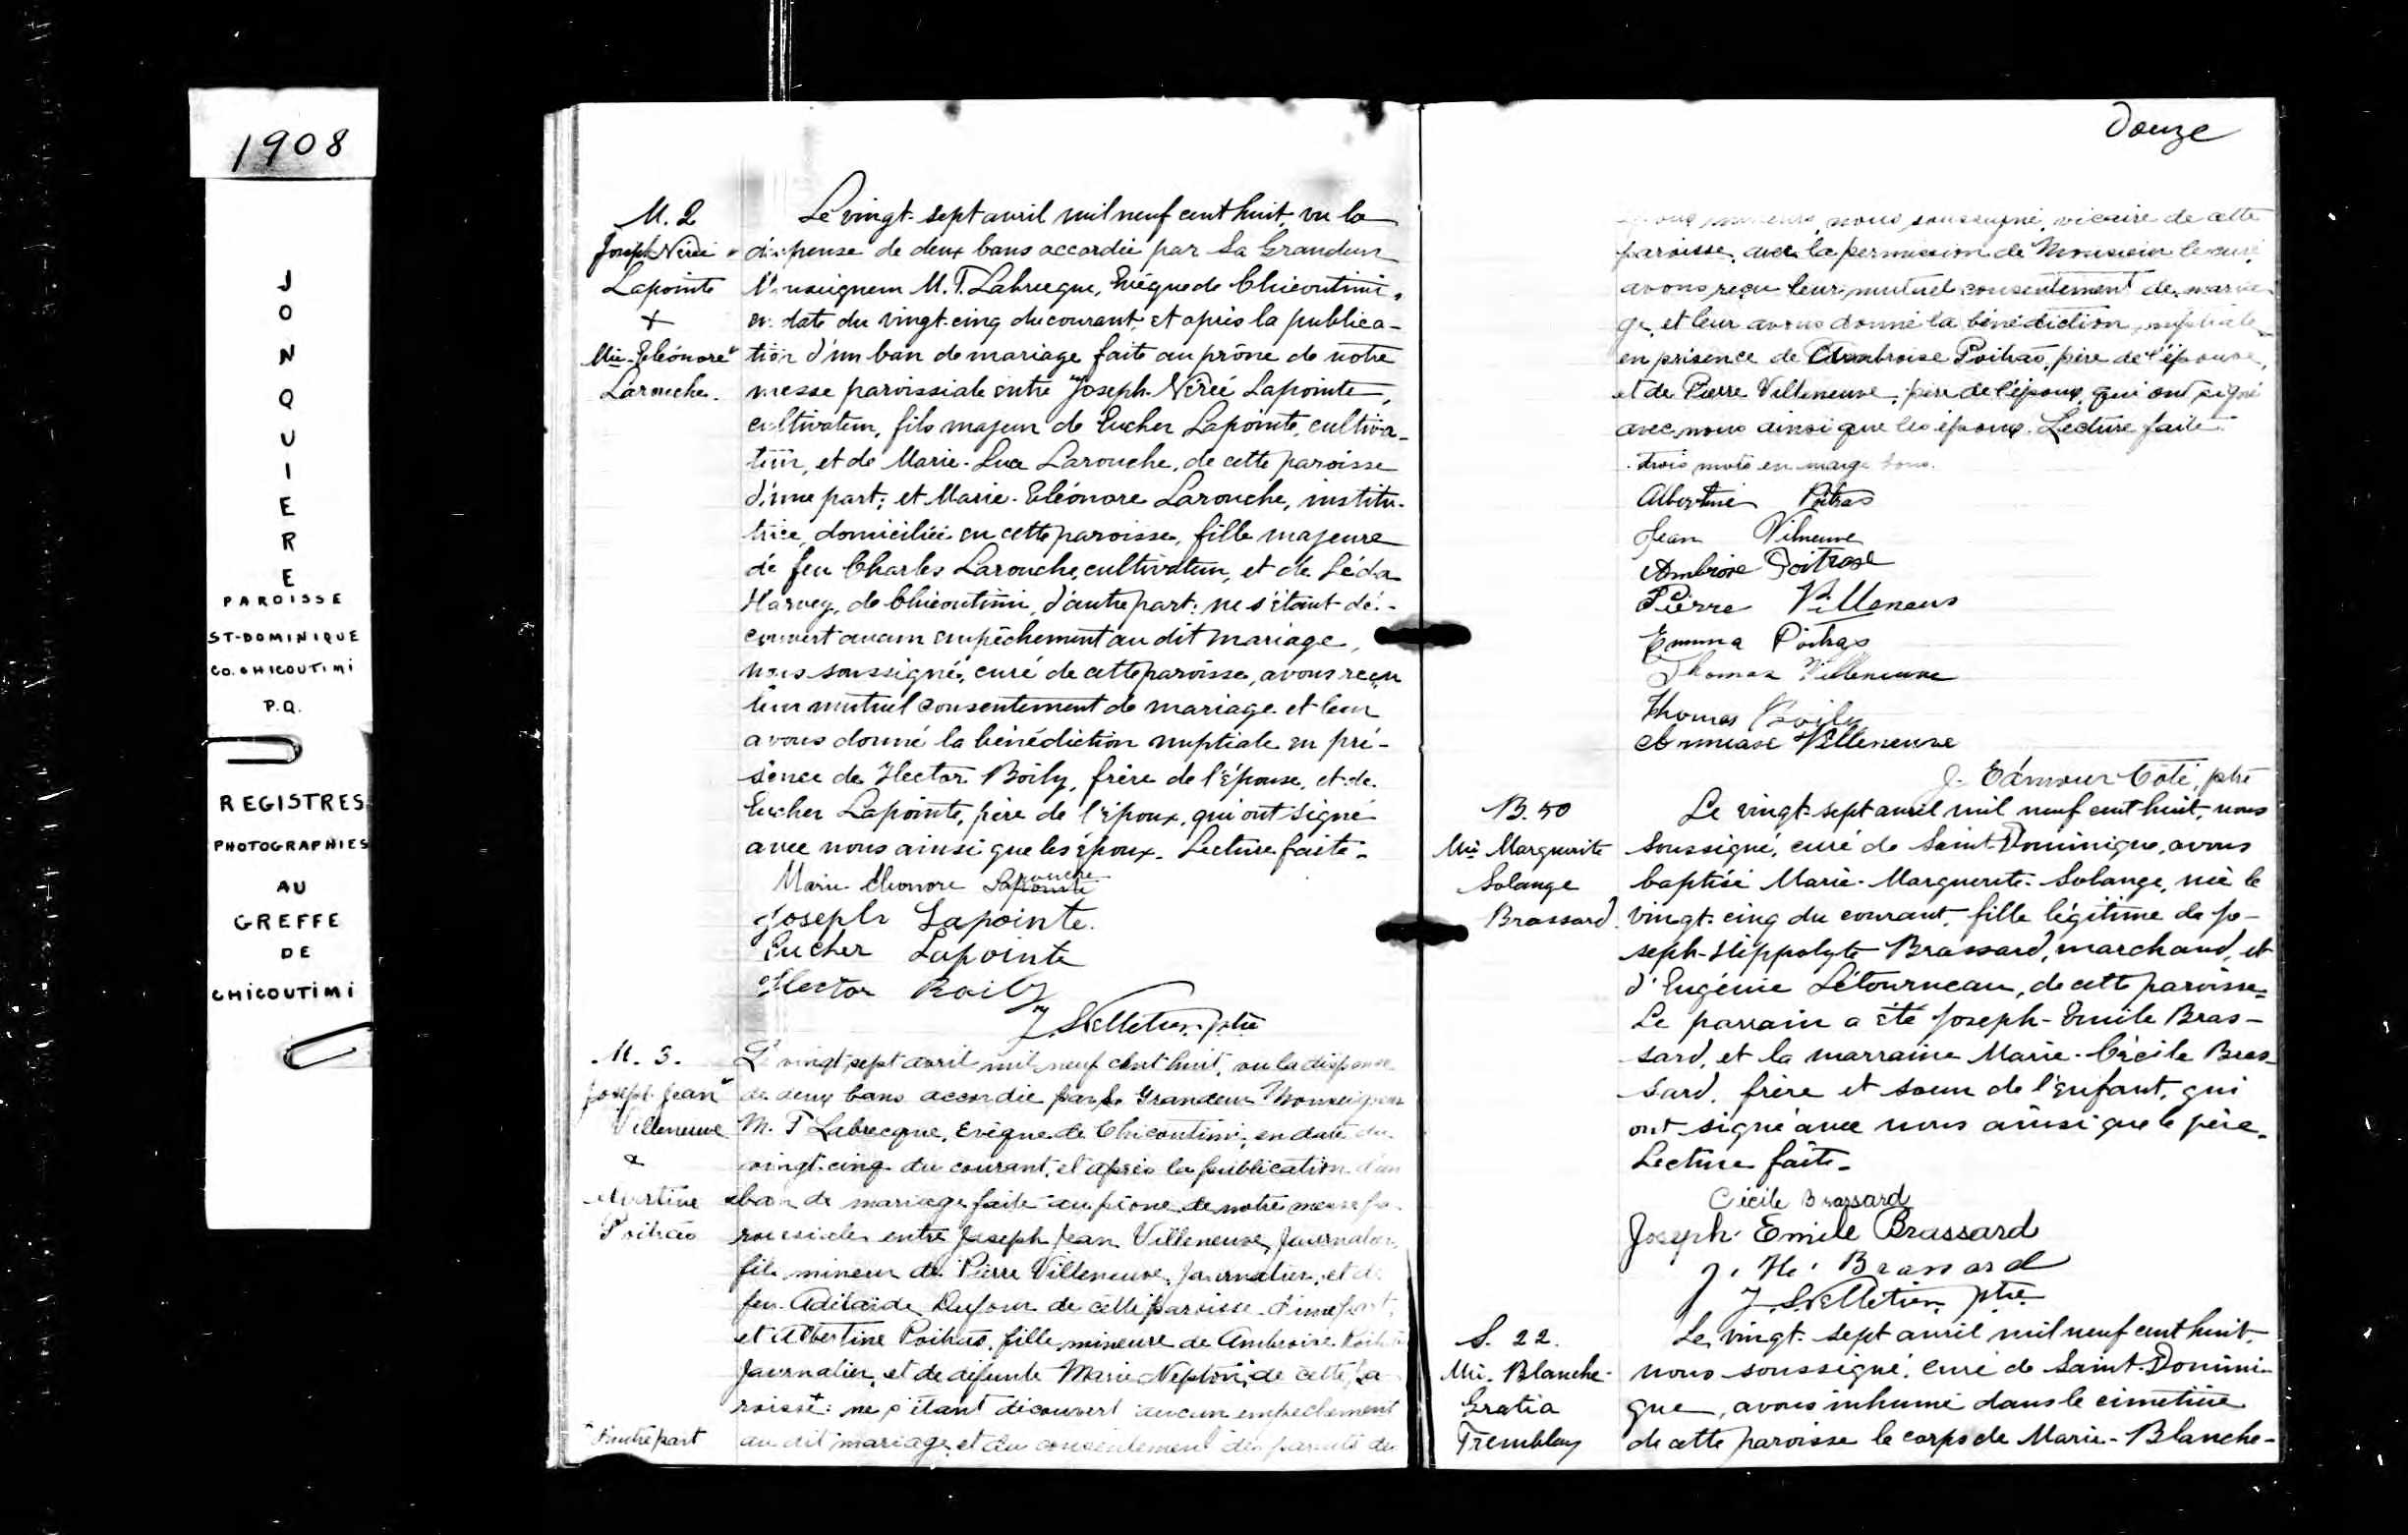 1908
JONQUIERE
PAROISSE
ST-DOMINIQUE
CO. CHICOUTIMI
P.Q.
REGISTRES
PHOTOGRAPHIES
AU
GREFFE
DE
CHICOUTIMI
M. 2
Joseph Nérée
Lapointe
+
Mie-Eléonore
Larouche.
Le vingt-sept avril mil neuf cent huit, vu la
dispense de deux bans accordée par Sa Grandeur
Monseigneur M. T. Labrecque, Evêque de Chicoutimi,
en date du vingt-cinq du courant, et après la publica-
tion d'un ban de mariage faite au prône de notre
messe paroissiale entre Joseph-Nérée Lapointe,
cultivateur, fils majeur de Eucher Lapointe, cultiva-
teur, et de Marie-Luce Larouche, de cette paroisse
d'une part; et Marie-Eléonore Larouche, institu-
trice, domiciliée en cette paroisse, fille majeure
de feu Charles Larouche, cultivateur, et de Léda
Harvey, de Chicoutimi, d'autre part: ne s'étant dé-
couvert aucun empêchement au dit mariage,
nous soussigné, curé de cette paroisse, avons reçu
leur mutuel consentement de mariage et leur
avons donné la bénédiction nuptiale en pré-
sence de Hector Boily, frère de l'épouse, et de
Eucher Lapointe, père de l'époux, qui ont signé
avec nous ainsi que les époux. Lecture faite.
Marie Eleonore Larouche
Joseph Lapointe.
Eucher Lapointe
Hector Boily
J. S. Pelletier, ptre
M. 3.
Joseph-Jean
Villeneuve
&
Albertine
Poitras
Le vingt-sept avril mil neuf cent huit, vu la dispense
de deux bans accordée par Sa Grandeur Monseigneur
M. T. Labrecque, Evêque de Chicoutimi, en date du
vingt-cinq du courant, et après la publication d'un
ban de mariage faite au prône de notre messe pa-
roissiale entre Joseph Jean Villeneuve, Journalier,
fils mineur de Pierre Villeneuve, journalier, et de
feu Adélaïde Dufour de cette paroisse d'une part,
et Albertine Poitras, fille mineure de Ambroise Poitras
Journalier, et de défunte Marie Nepton, de cette pa-
roisse+: ne s'étant découvert aucun empêchement
au dit mariage, et du consentement des parents des
+ d'autre part
Douze
époux mineurs, nous soussigné, vicaire de cette
paroisse, avec la permission de Monsieur le curé,
avons reçu leur mutuel consentement de maria-
ge, et leur avons donné la bénédiction nuptiale
en présence de Ambroise Poitras, père de l'épouse,
et de Pierre Villeneuve, père de l'époux, qui ont signé
avec nous ainsi que les époux. Lecture faite.
trois mots en marge bons.
Albertine Poitras
Jean Vilneuve
Ambroise Poitrase
Pierre Villeneus
Emma Poitras
Thomas Villeneuve
Thomas Boily
Villeneuve
J. Edmour Côté, ptre
B. 50
Mie Marguerite
Solange
Brassard.
Le vingt-sept avril mil neuf cent huit, nous
soussigné, curé de Saint-Dominique, avons
baptisé Marie-Marguerite-Solange, née le
vingt-cinq du courant, fille légitime de Jo-
seph-Hippolyte Brassard, marchand, et
d'Eugénie Létourneau, de cette paroisse.
Le parrain a été Joseph-Emile Bras-
sard, et la marraine Marie-Cécile Bras-
sard, frère et soeur de l'enfant, qui
ont signé avec nous ainsi que le père.
Lecture faite.
Cécile Brassard
Joseph Emile Brassard
J. H. Brassard
J. S. Pelletier, ptre
S. 22.
Mie-Blanche-
Gratia
Tremblay
Le vingt-sept avril mil neuf cent huit,
nous soussigné, curé de Saint-Domini-
que, avons inhumé dans le cimetière
de cette paroisse le corps de Marie-Blanche-